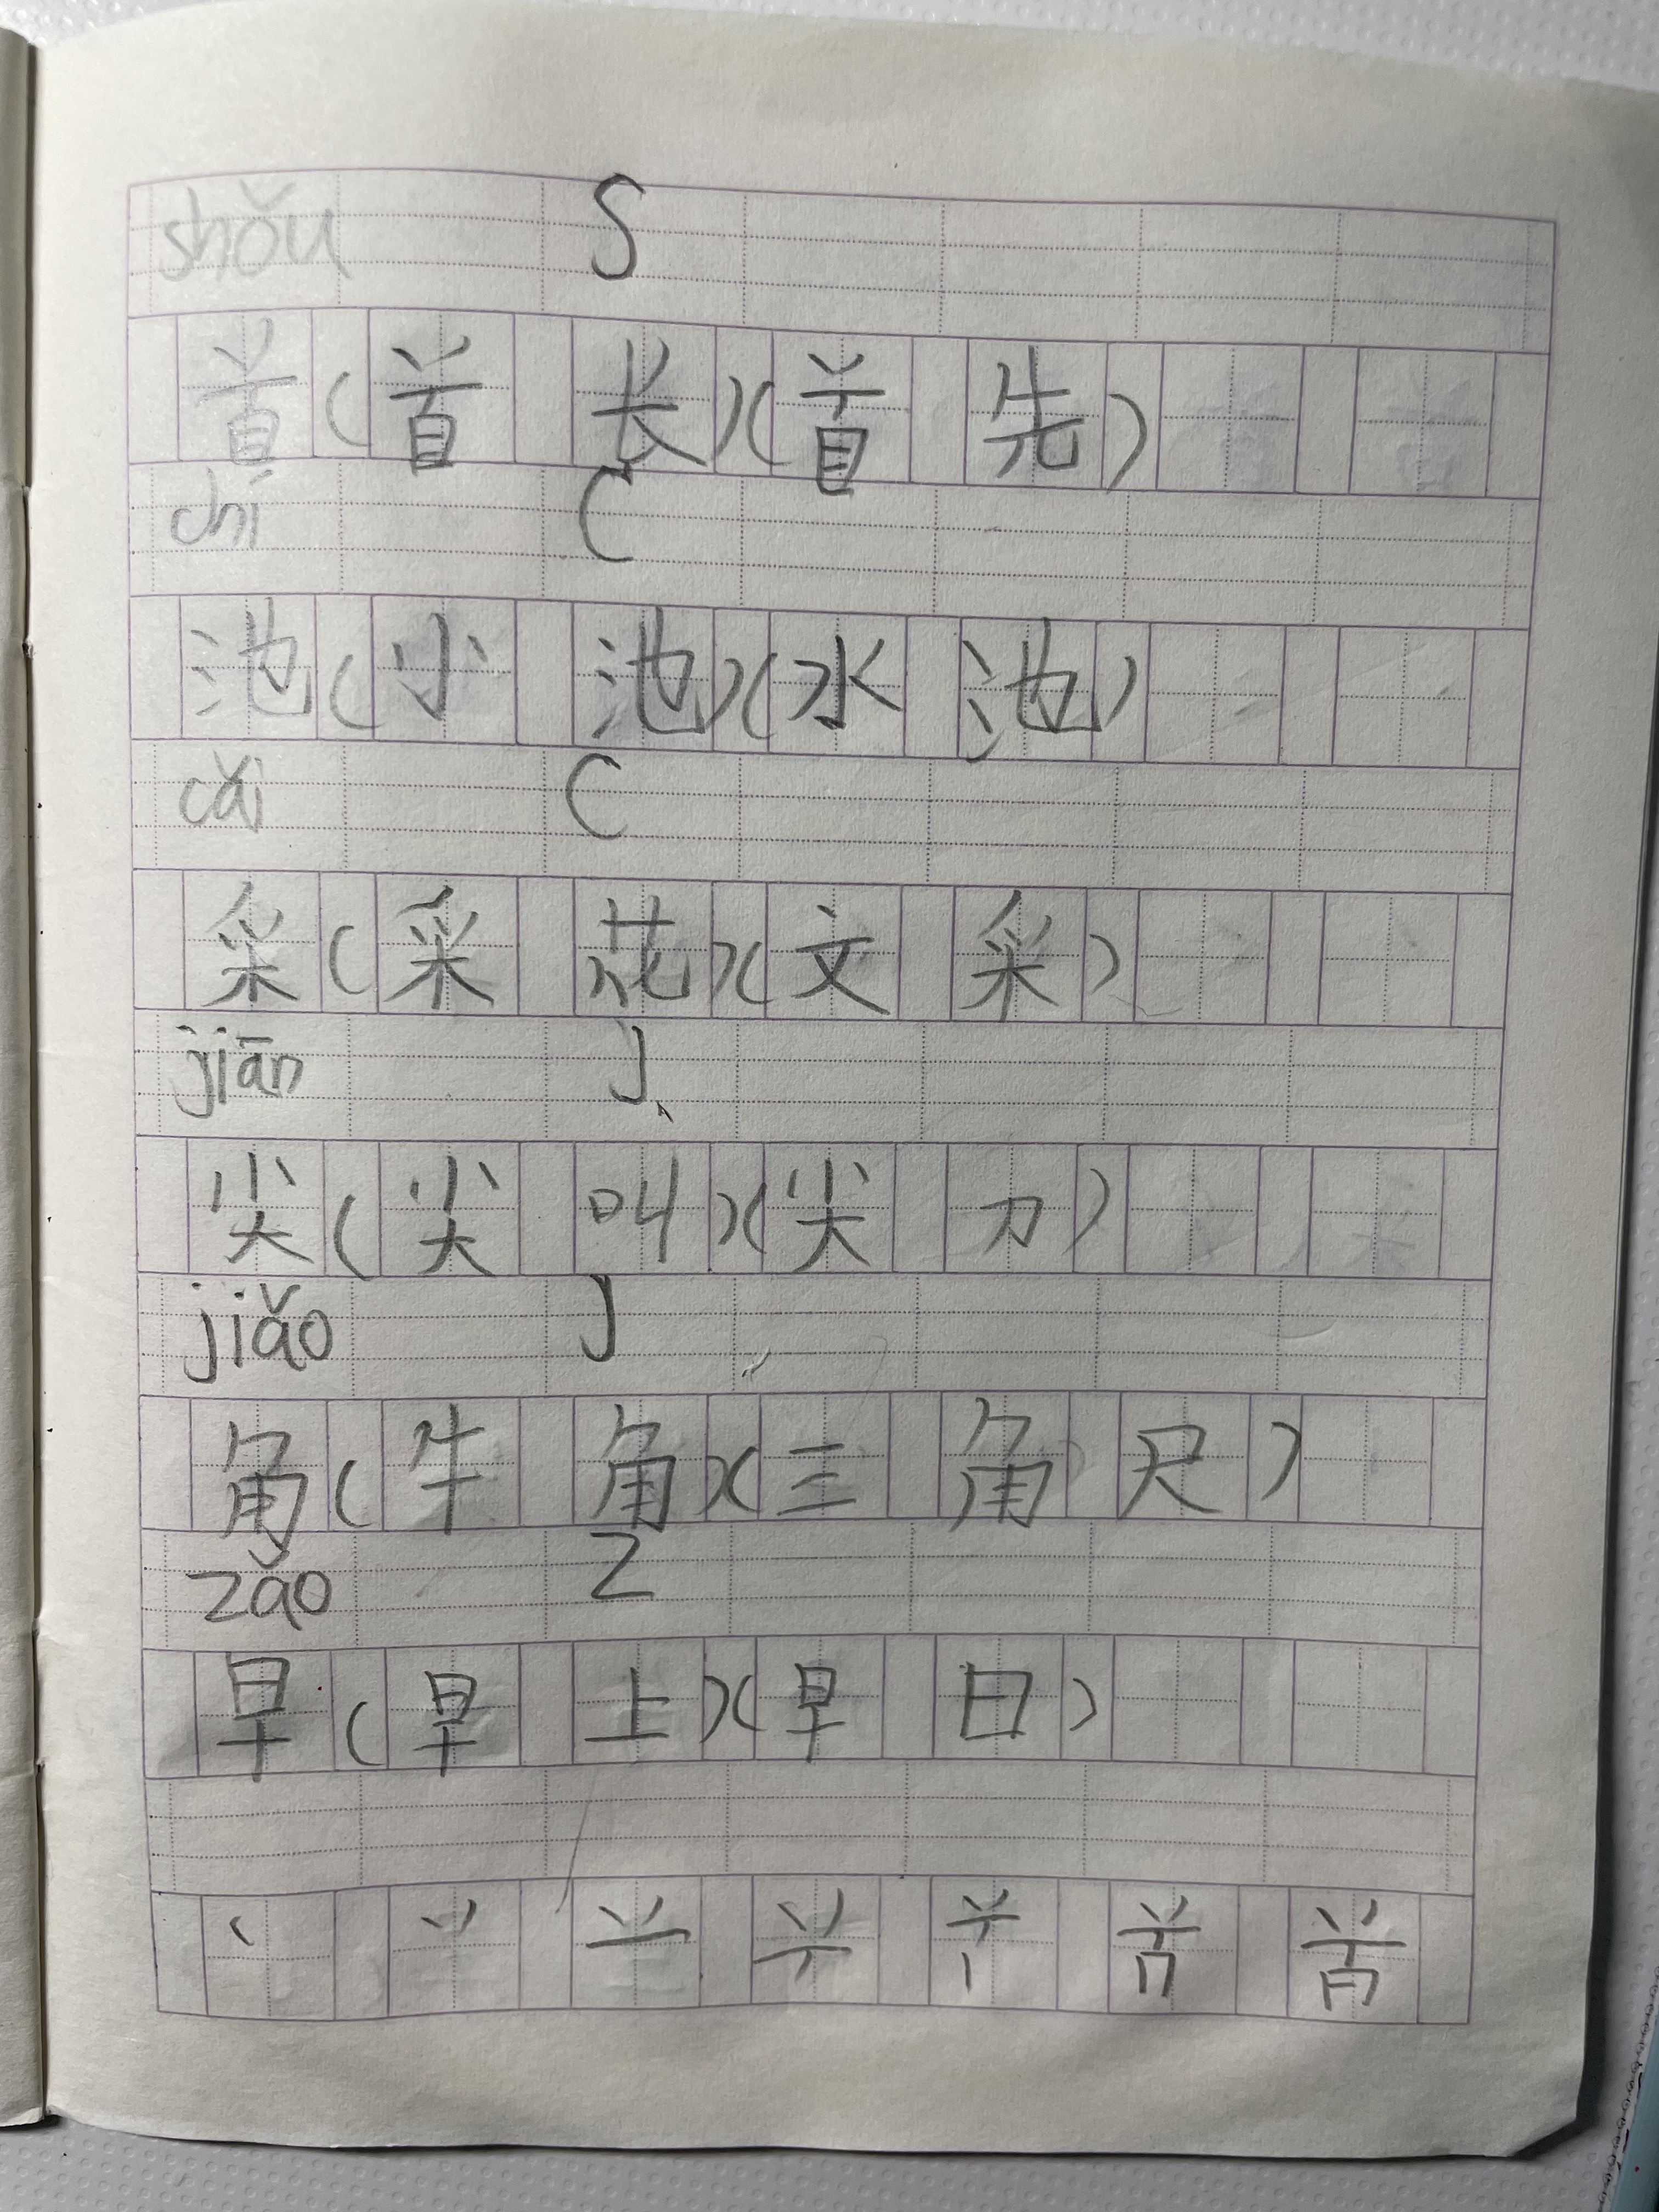 shǒu S
首(首长)(首先)
chí C
池(小池)(水池)
cǎi C
采(采花)(文采)
jiān J
尖(尖叫)(尖刀)
jiǎo J
角(牛角)(三角尺)
zǎo Z
早(早上)(早日)